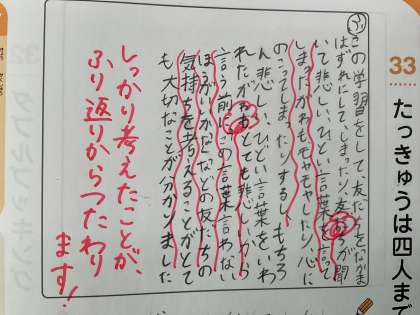 33
たっきゅうは四人まで
ふ
この学習をして、友だちをなかま
はずれにしてしまったり、友だちが聞
いて悲しい、ひどい言葉を言って
しまったかれもモヤモヤしたり、心に
のこってしまったりするし、もちろ
ん悲しい、ひどい言葉をいわ
れたがわもとても悲しいから
言う前にこの言葉言わない
ほうがいいかななどの友だちの
気持ちを考えることがとて
も大切なことが分かりました
しっかり考えたことが、
ふり返りからつたわり
ます!